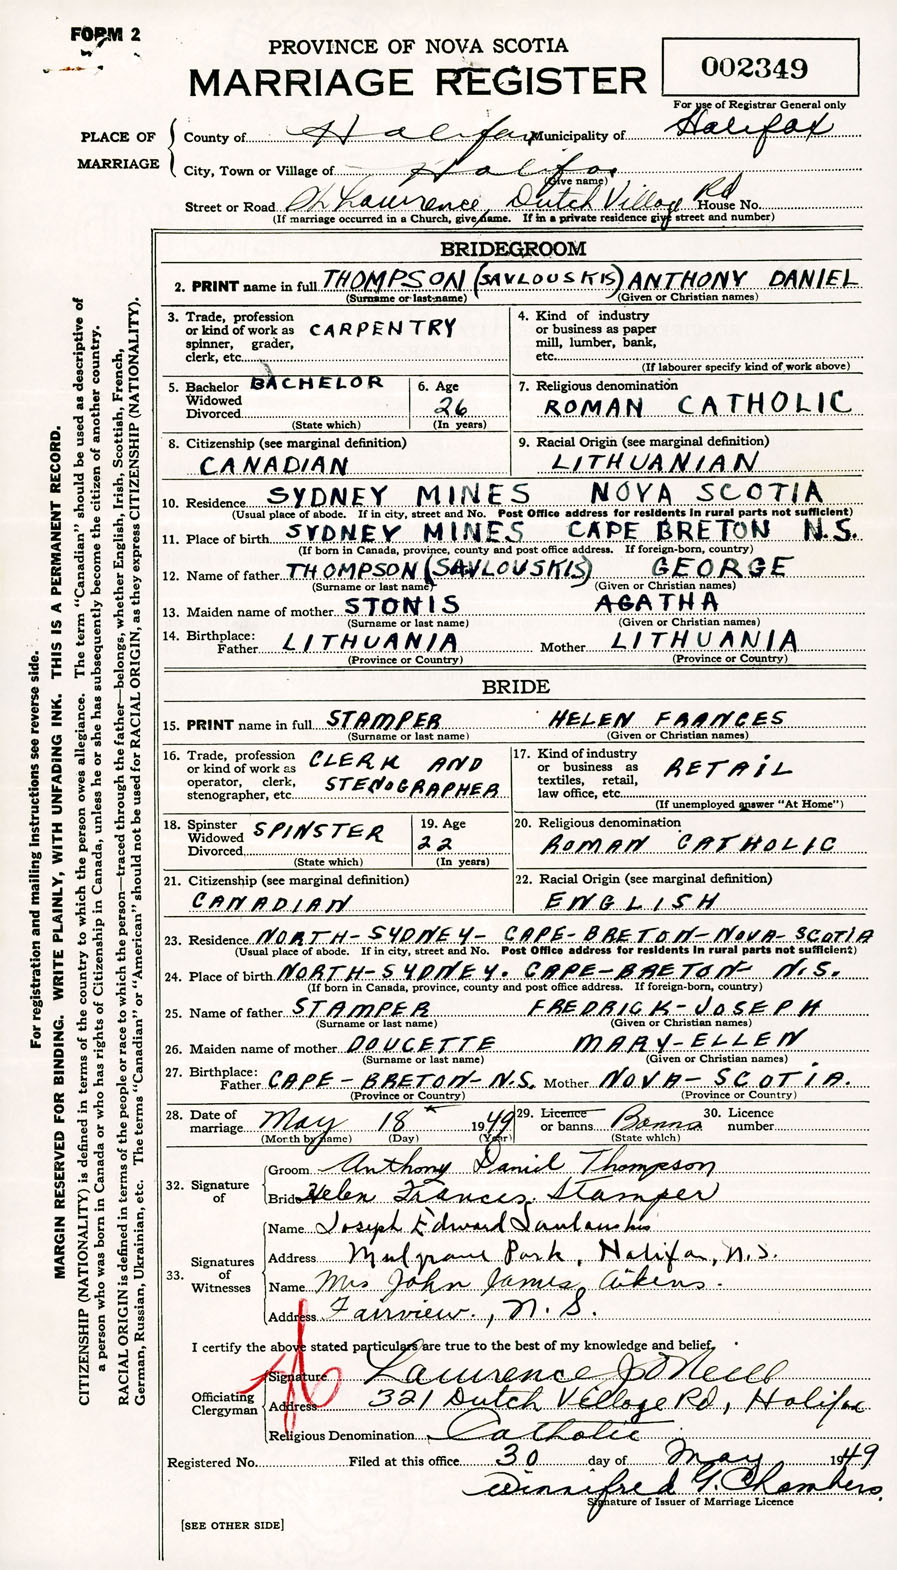 FORM 2
PROVINCE OF NOVA SCOTIA
MARRIAGE REGISTER
002349
For use of Registrar General only
PLACE OF MARRIAGE
County of Halifax Municipality of Halifax
City, Town or Village of Halifax
(Give name)
Street or Road St Lawrence, Dutch Village Rd House No.
(If marriage occurred in a Church, give name. If in a private residence give street and number)
BRIDEGROOM
2. PRINT name in full THOMPSON (SAVLOUSKIS) ANTHONY DANIEL
(Surname or last name) (Given or Christian names)
3. Trade, profession or kind of work as spinner, grader, clerk, etc. CARPENTRY
4. Kind of industry or business as paper mill, lumber, bank, etc.
(If labourer specify kind of work above)
5. Bachelor Widowed Divorced BACHELOR
(State which)
6. Age 26
(In years)
7. Religious denomination
ROMAN CATHOLIC
8. Citizenship (see marginal definition)
CANADIAN
9. Racial Origin (see marginal definition)
LITHUANIAN
10. Residence SYDNEY MINES NOVA SCOTIA
(Usual place of abode. If in city, street and No. Post Office address for residents in rural parts not sufficient)
11. Place of birth SYDNEY MINES CAPE BRETON N.S.
(If born in Canada, province, county and post office address. If foreign-born, country)
12. Name of father THOMPSON (SAVLOUSKIS) GEORGE
(Surname or last name) (Given or Christian names)
13. Maiden name of mother STONIS AGATHA
(Surname or last name) (Given or Christian names)
14. Birthplace: Father LITHUANIA Mother LITHUANIA
(Province or Country) (Province or Country)
BRIDE
15. PRINT name in full STAMPER HELEN FRANCES
(Surname or last name) (Given or Christian names)
16. Trade, profession or kind of work as operator, clerk, stenographer, etc. CLERK AND STENOGRAPHER
17. Kind of industry or business as textiles, retail, law office, etc. RETAIL
(If unemployed answer "At Home")
18. Spinster Widowed Divorced SPINSTER
(State which)
19. Age 22
(In years)
20. Religious denomination
ROMAN CATHOLIC
21. Citizenship (see marginal definition)
CANADIAN
22. Racial Origin (see marginal definition)
ENGLISH
23. Residence NORTH-SYDNEY-CAPE-BRETON-NOVA-SCOTIA
(Usual place of abode. If in city, street and No. Post Office address for residents in rural parts not sufficient)
24. Place of birth NORTH-SYDNEY. CAPE-BRETON- N.S.
(If born in Canada, province, county and post office address. If foreign-born, country)
25. Name of father STAMPER FREDRICK-JOSEPH
(Surname or last name) (Given or Christian names)
26. Maiden name of mother DOUCETTE MARY-ELLEN
(Surname or last name) (Given or Christian names)
27. Birthplace: Father CAPE-BRETON-N.S. Mother NOVA-SCOTIA.
(Province or Country) (Province or Country)
28. Date of marriage May 18 1949
(Month by name) (Day) (Year)
29. Licence or banns Banns
(State which)
30. Licence number
32. Signature of
Groom Anthony Daniel Thompson
Bride Helen Frances Stamper
33. Signatures of Witnesses
Name Joseph Edward Savlouskis
Address Mulgrave Park, Halifax, N.S.
Name Mrs John James Aikens.
Address Fairview., N.S.
I certify the above stated particulars are true to the best of my knowledge and belief.
Officiating Clergyman
Signature Lawrence J O'Neill
Address 321 Dutch Village Rd, Halifax
Religious Denomination Catholic
Registered No. Filed at this office 30 day of May 1949
Winnifred G. Chambers.
Signature of Issuer of Marriage Licence
[SEE OTHER SIDE]
For registration and mailing instructions see reverse side.
MARGIN RESERVED FOR BINDING. WRITE PLAINLY, WITH UNFADING INK. THIS IS A PERMANENT RECORD.
CITIZENSHIP (NATIONALITY) is defined in terms of the country to which the person owes allegiance. The term "Canadian" should be used as descriptive of
a person who was born in Canada or who has rights of Citizenship in Canada, unless he or she has subsequently become the citizen of another country.
RACIAL ORIGIN is defined in terms of the people or race to which the person—traced through the father—belongs, whether English, Irish, Scottish, French,
German, Russian, Ukrainian, etc. The terms "Canadian" or "American" should not be used for RACIAL ORIGIN, as they express CITIZENSHIP (NATIONALITY).